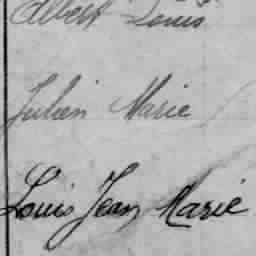 Albert Louis
Julien Marie
Louis Jean Marie